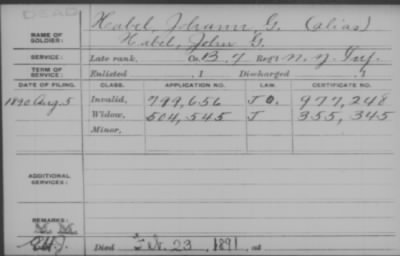 DEAD
NAME OF SOLDIER: Habel, Johann G. (alias)
Habel, John G.
SERVICE: Late rank, Co. B. 7 Reg't N. J. Inf.
TERM OF SERVICE: Enlisted , 1 Discharged , 1
DATE OF FILING. CLASS. APPLICATION NO. LAW. CERTIFICATE NO.
1890 Aug. 5 Invalid, 799,656 977,248
Widow, 504,545 J 355,345
Minor,
ADDITIONAL SERVICES:
REMARKS:
Died Feb. 23, 1891, at